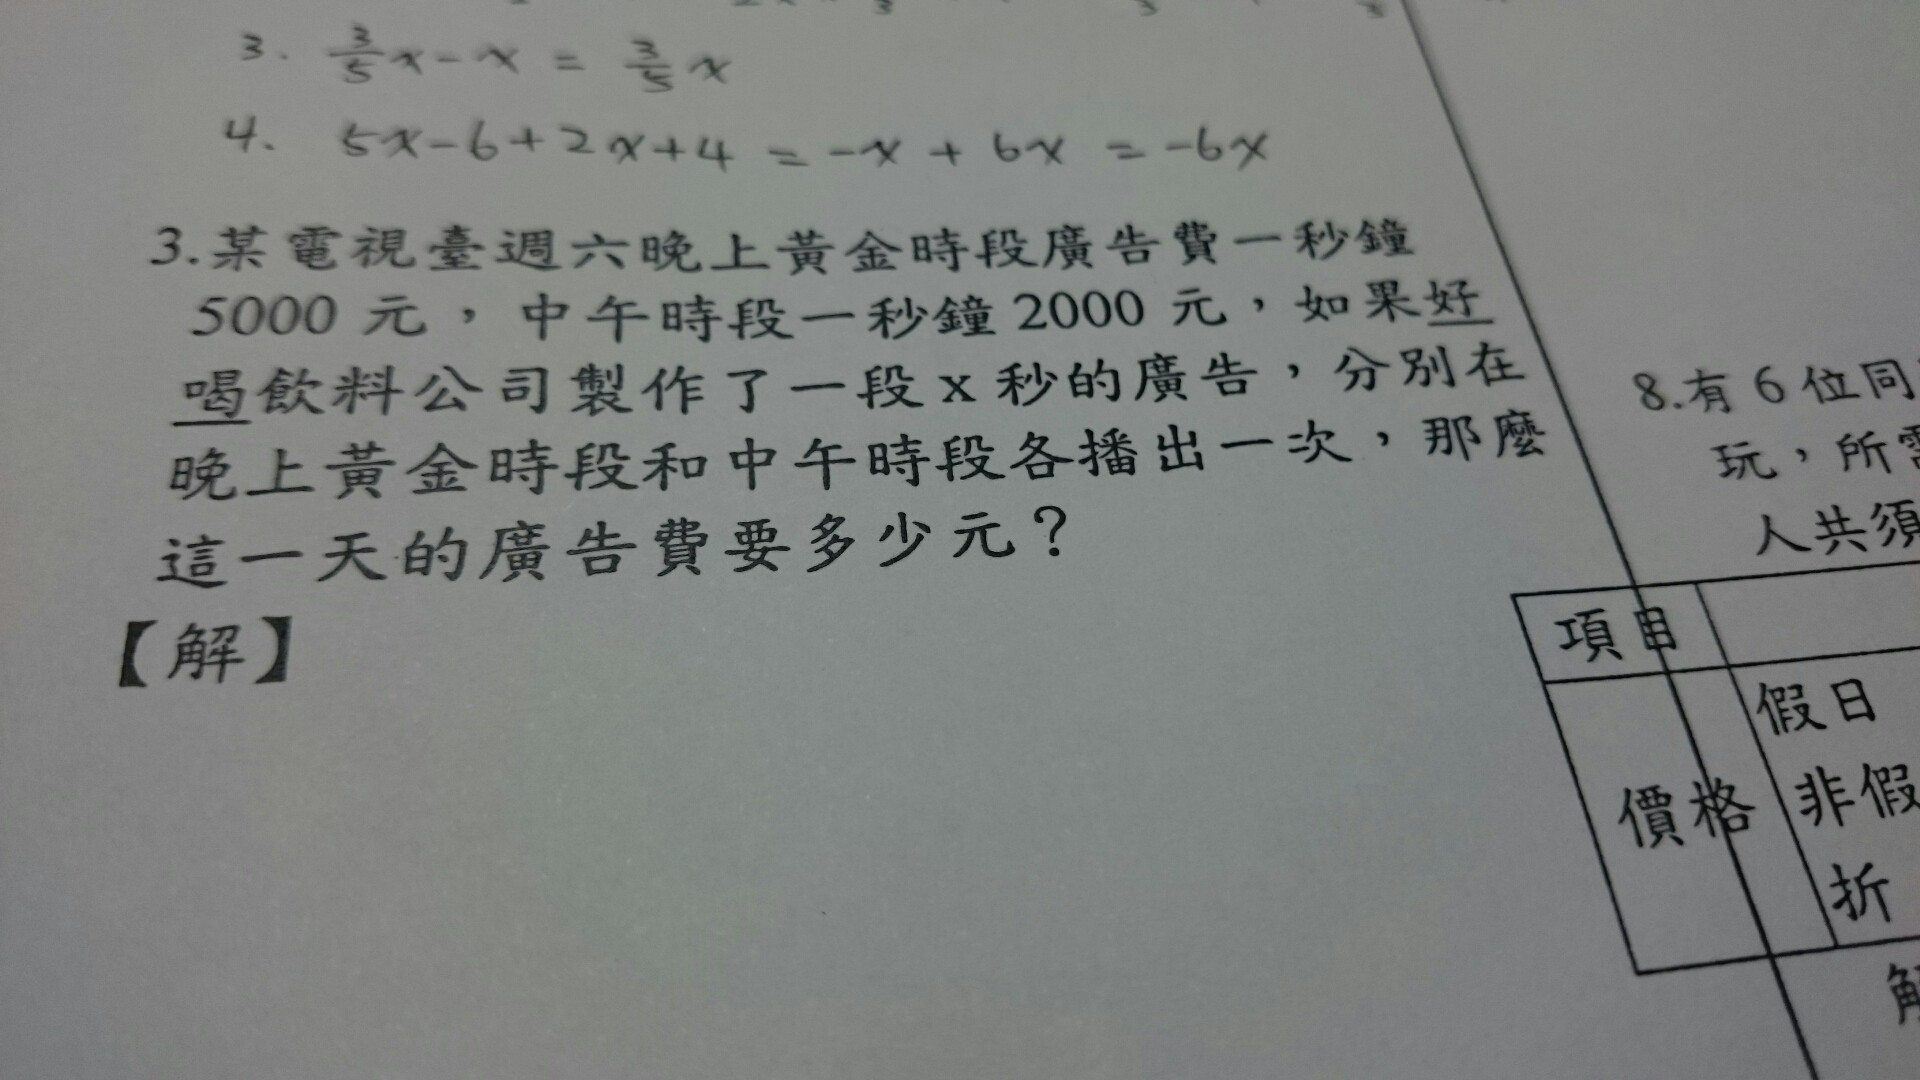 3. 3/5 x - x = 3/5 x
4. 5x-6+2x+4 = -x + 6x = -6x
3.某電視臺週六晚上黃金時段廣告費一秒鐘
5000 元，中午時段一秒鐘 2000 元，如果好
喝飲料公司製作了一段 x 秒的廣告，分別在
晚上黃金時段和中午時段各播出一次，那麼
這一天的廣告費要多少元？
【解】
8.有 6 位同
玩，所需
人共須
項目
價格
假日
非假
折
解